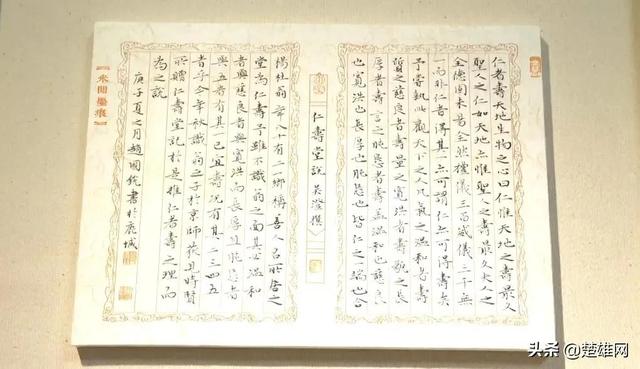 仁者壽天地生物之心曰仁惟天地之壽最久
聖人之仁如天地亦惟聖人之壽最久夫人之
全德固未易全然禮儀三百威儀三千無
一而非仁者得其一亦可謂仁亦可得壽矣
予嘗執此觀天下之人凡氣之溫和者壽
質之慈良者壽量之寬洪者壽貌之長
厚者壽言之者壽蓋溫和也慈良
也寬洪也長厚也也皆仁之一端也合
仁壽堂說 吳澄撰
翁年八十有二鄉稱善人名所居之
堂為仁壽予雖不識翁之面其必溫和
者與慈良者與寬洪而長厚且者
與五者有其一已宜壽況有其二三四五
者乎今年秋識翁之子於京師獲且時賢
所贈仁壽堂記於是推仁者壽之理而
為之說
庚子夏之月趙國書於鹿城
墨痕
头条@楚雄网